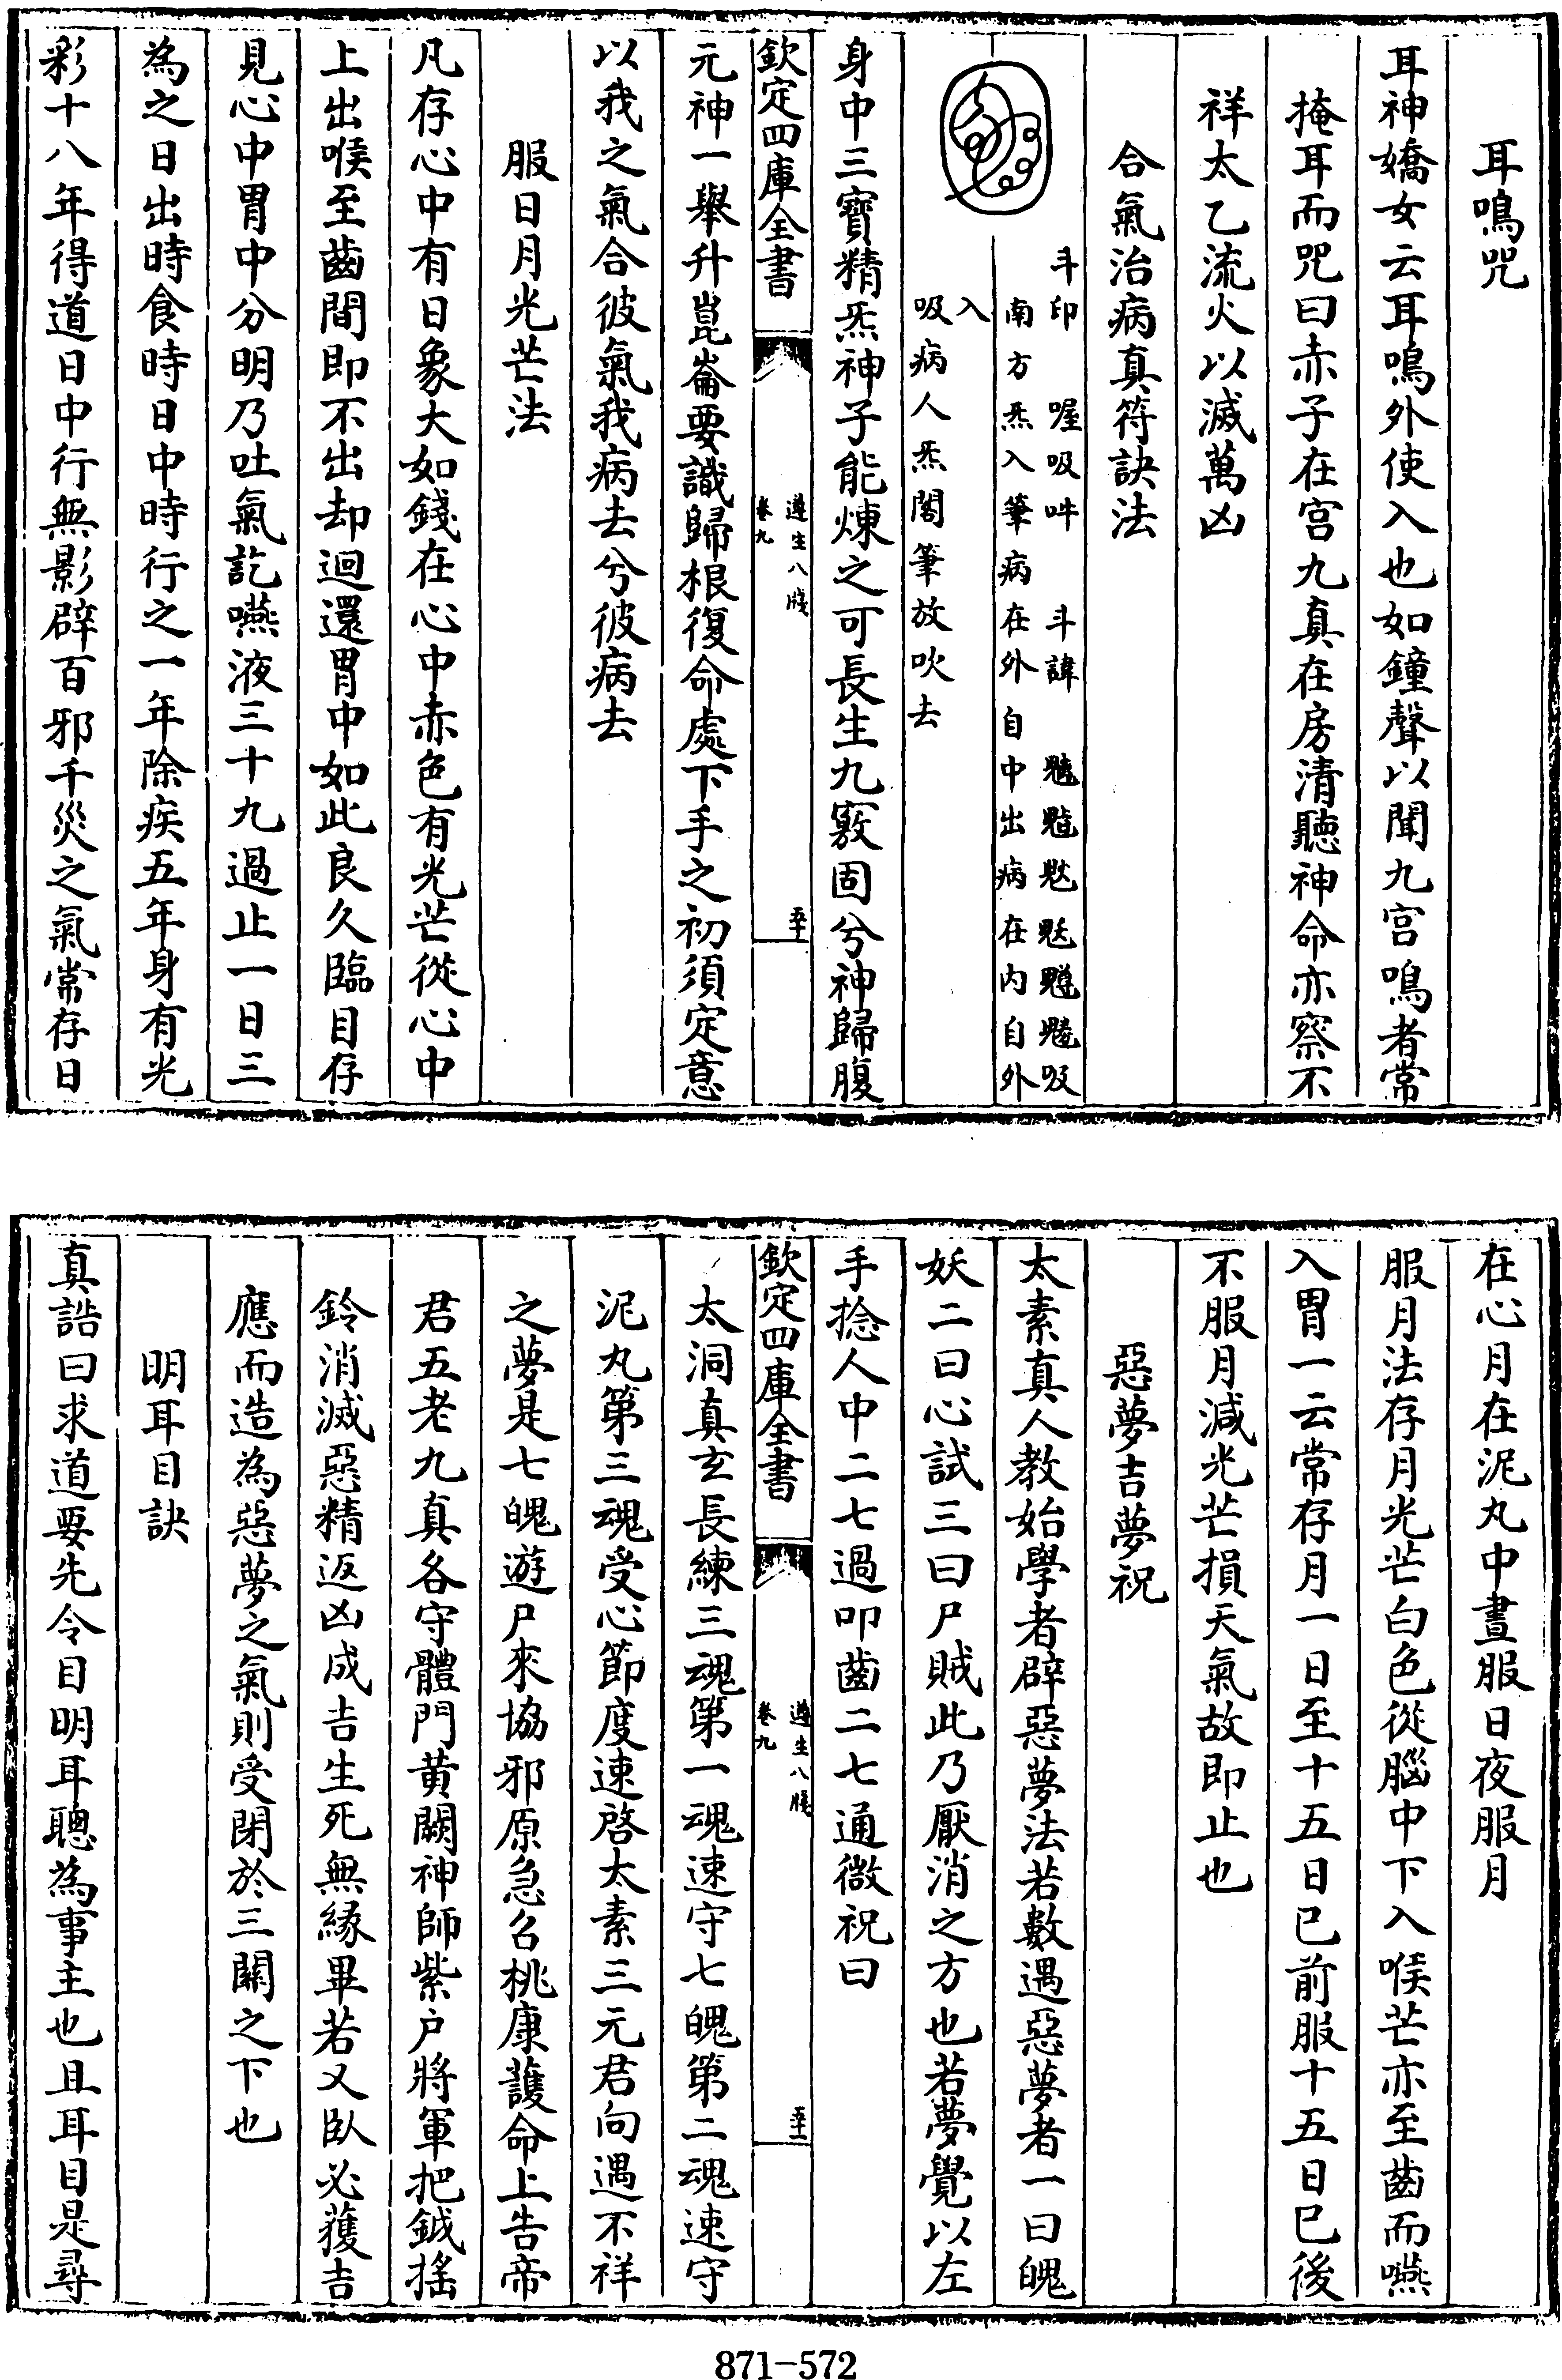 耳鳴咒
耳神嬌女云耳鳴外使入也如鐘聲以聞九宮鳴者常
掩耳而咒曰赤子在宮九真在房清聽神命亦察不
祥太乙流火以滅萬凶
合氣治病真符訣法
斗印　喔吸吽　斗諱　魒䰢吸
南方炁入筆病在外自中出病在內自外
入
吸病人炁閣筆放吹去
身中三寶精炁神子能煉之可長生九竅固兮神歸腹
欽定四庫全書
遵生八牋
卷九
五十
元神一舉升崑崙要識歸根復命處下手之初須定意
以我之氣合彼氣我病去兮彼病去
服日月光芒法
凡存心中有日象大如錢在心中赤色有光芒從心中
上出喉至齒間即不出却迴還胃中如此良久臨目存
見心中胃中分明乃吐氣訖嚥液三十九過止一日三
為之日出時食時日中時行之一年除疾五年身有光
彩十八年得道日中行無影辟百邪千災之氣常存日
在心月在泥丸中晝服日夜服月
服月法存月光芒白色從腦中下入喉芒亦至齒而嚥
入胃一云常存月一日至十五日已前服十五日已後
不服月減光芒損天氣故即止也
惡夢吉夢祝
太素真人教始學者辟惡夢法若數遇惡夢者一曰魄
妖二曰心試三曰尸賊此乃厭消之方也若夢覺以左
手捻人中二七過叩齒二七通微祝曰
欽定四庫全書
遵生八牋
卷九
五十一
太洞真玄長練三魂第一魂速守七魄第二魂速守
泥丸第三魂受心節度速啓太素三元君向遇不祥
之夢是七魄遊尸來協邪原急召桃康護命上告帝
君五老九真各守體門黃闕神師紫戶將軍把鉞搖
鈴消滅惡精返凶成吉生死無緣畢若又臥必獲吉
應而造為惡夢之氣則受閉於三關之下也
明耳目訣
真誥曰求道要先令目明耳聰為事主也且耳目是尋
871-572